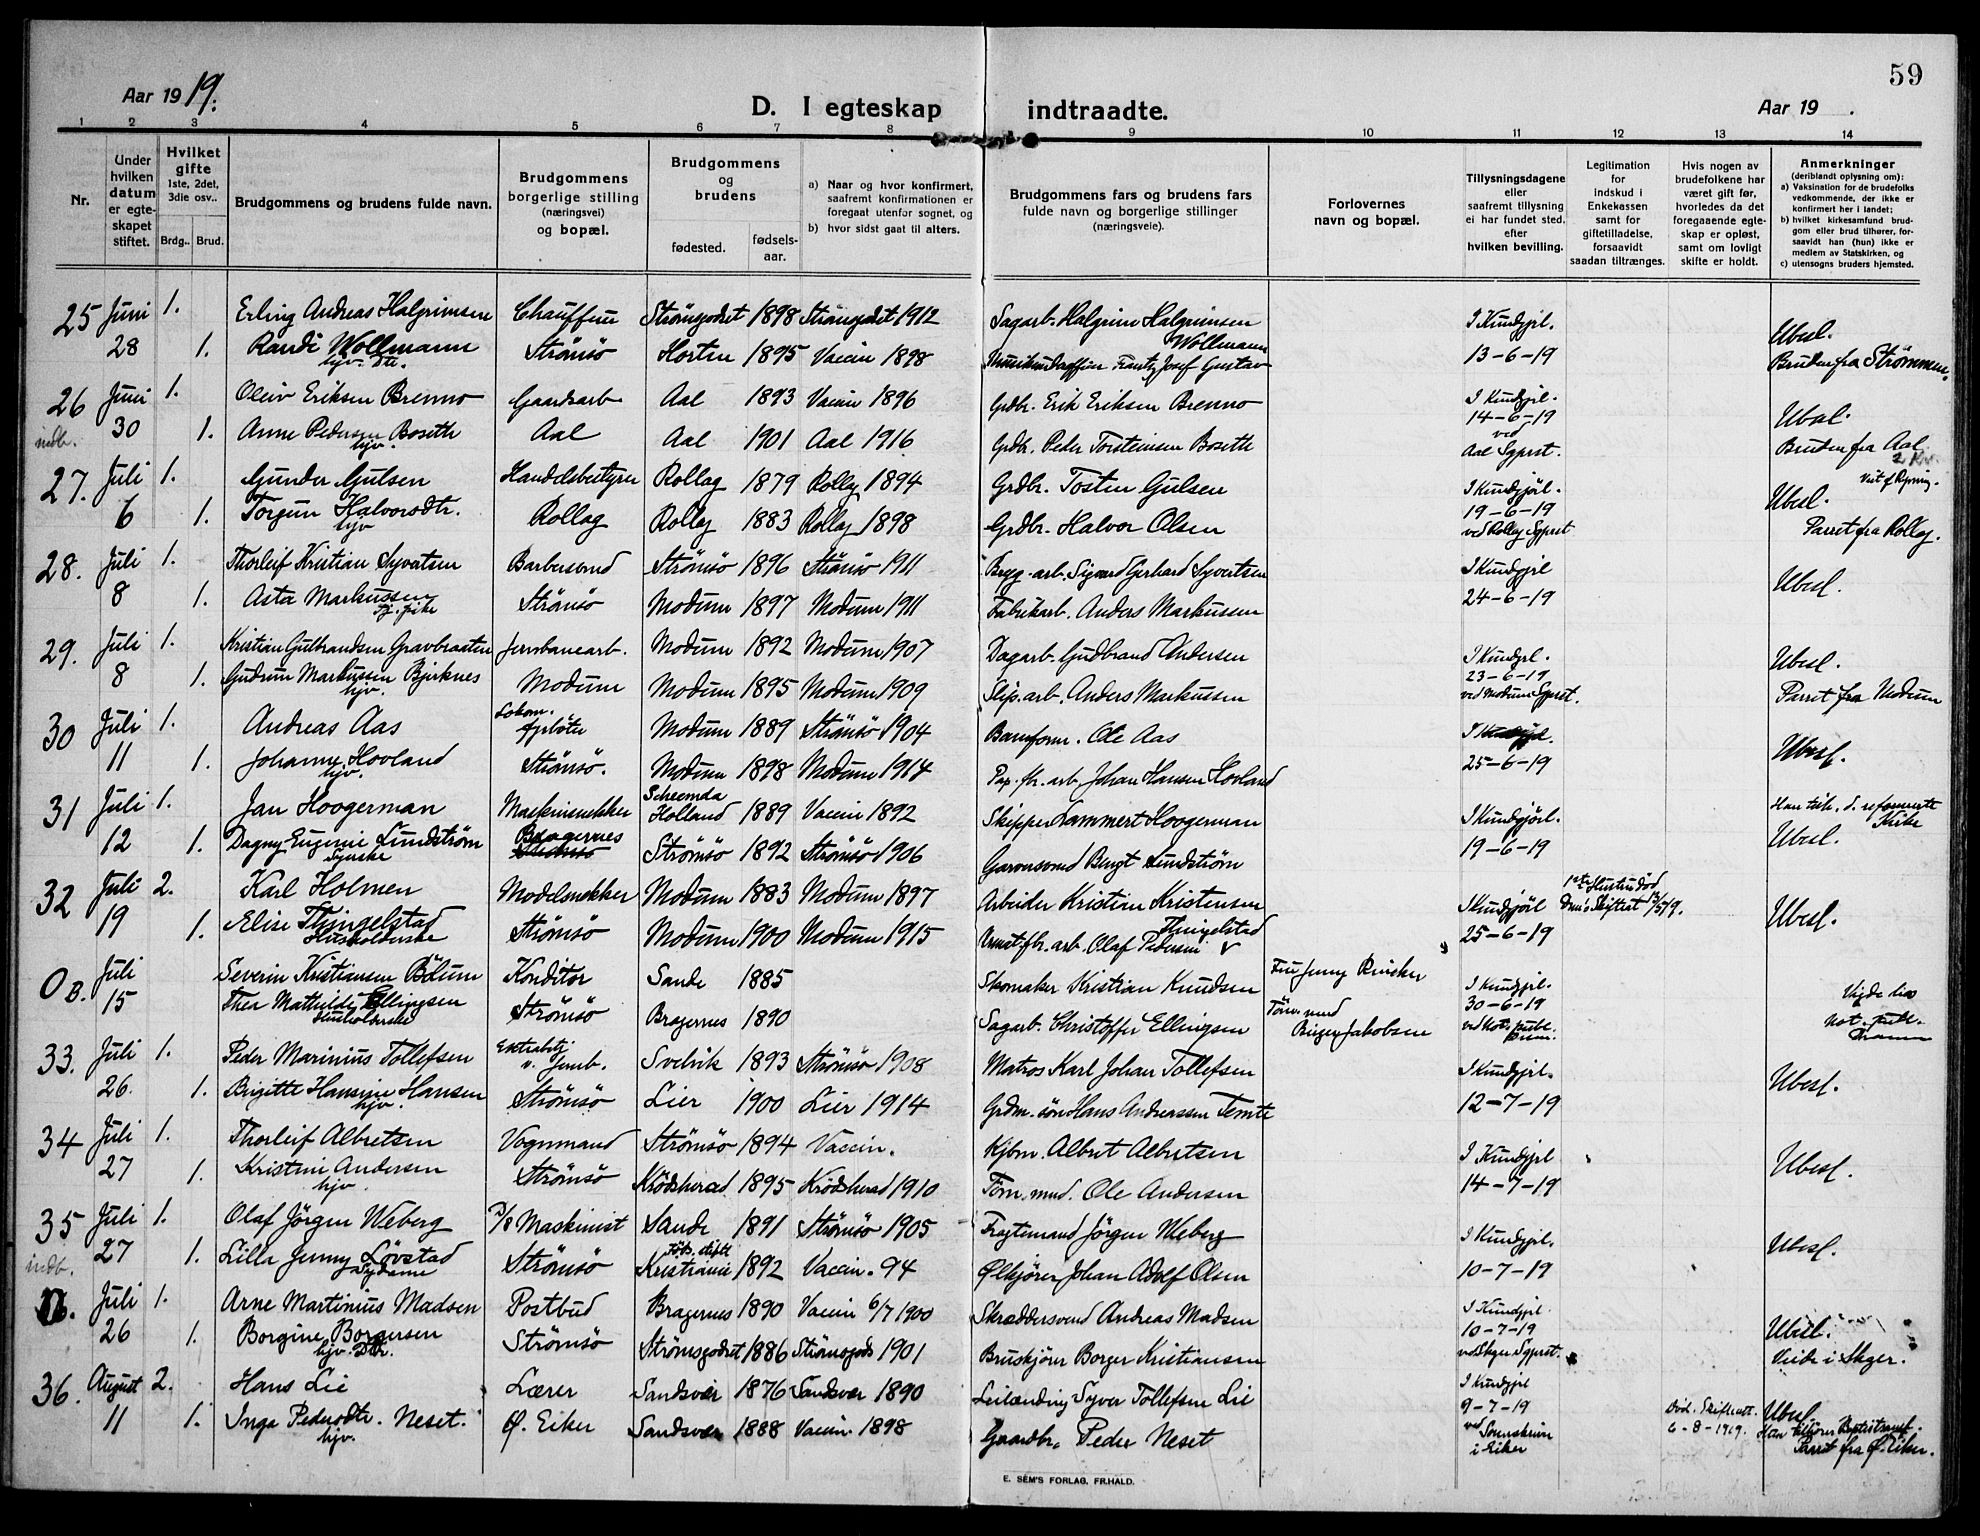 59
Aar 1919.
D. I egteskap indtraadte.
Aar 19 .
1 2 3 4 5 6 7 8 9 10 11 12 13 14
Nr.
Under hvilken datum er egteskapet stiftet.
Hvilket gifte 1ste, 2det, 3die osv..
Brdg.. Brud.
Brudgommens og brudens fulde navn.
Brudgommens borgerlige stilling (næringsvei) og bopæl.
Brudgommens og brudens
fødested. fødsels-aar.
a) Naar og hvor konfirmert, saafremt konfirmationen er foregaat utenfor sognet, og
b) hvor sidst gaat til alters.
Brudgommens fars og brudens fars fulde navn og borgerlige stillinger (næringsveie).
Forlovernes navn og bopæl.
Tillysningsdagene eller saafremt tillysning ei har fundet sted, efter hvilken bevilling.
Legitimation for indskud i Enkekassen samt for giftetilladelse, forsaavidt saadan tiltrænges.
Hvis nogen av brudefolkene har været gift før, hvorledes da det foregaaende egteskap er opløst, samt om lovligt skifte er holdt.
Anmerkninger (deriblandt oplysning om):
a) Vaksination for de brudefolks vedkommende, der ikke er konfirmert her i landet;
b) hvilket kirkesamfund brudgom eller brud tilhører, forsaavidt han (hun) ikke er medlem av Statskirken, og
c) utensogns bruders hjemsted.
25 Juni 1. Erling Andreas Halgrimsen Chauffeur Strömsgodset 1898 Strömsgodset 1912 Sagarb. Halgrim Halgrimsen I Kundgjel. Ubesl.
28 1. Randi Wollmann Strömsö Horten 1895 Vaccin 1898 Frantz Josef Gustav Wollmann 13-6-19 Bruden fra Strömmen.
hjv. Dtr.
26 Juni 1. Oleiv Eriksen Brenno Gaardsarb Aal 1893 Vaccin 1896 Grdbr. Erik Eriksen Brenno I Kundgjel. 14-6-19 Ubesl.
indb. 30 1. Anne Pedersen Boseth Aal Aal 1901 Aal 1916 Grdbr. Peder Torsteinsen Boseth ved Aal Sgprst. Bruden fra Aal
hjv.
27. Juli 1. Gunder Gulsen Handelsbestyrer Rollag 1879 Rollag 1894 Grdbr. Tosten Gulsen I Kundgjörl. 19-6-19 Ubesl.
6 1. Torgun Halvorsdtr. Rollag Rollag 1883 Rollag 1898 Grdbr. Halvor Olsen ved Rollag Sgprst Parret fra Rollag.
hjv
28. Juli 1. Thorleif Kristian Syvertsen Barbersvend Strömsö 1896 Strömsö 1911 Brygg.arb. Sigvard Gerhard Syvertsen I Kundgjel Ubesl.
8 1. Asta Markussen Strömsö Modum 1897 Modum 1911 Fabrikarb. Anders Markussen 24-6-19
29. Juli 1. Kristian Gulbrandsen Gravbraaten Jernbanearb. Modum 1892 Modum 1907 Dagarb. Gudbrand Andersen I Kundgjel. 23-6-19 Ubesl.
8 1. Gudrun Markussen Bjerknes Modum Modum 1895 Modum 1909 Slip.arb. Anders Markussen ved Modum Sgprst. Parret fra Modum
hjv.
30 Juli 1. Andreas Aas Lokom. fyrböter Modum 1889 Strömsö 1904 Baneform. Ole Aas I Kundgjel. Ubesl.
11 1. Johanne Hovland Strömsö. Modum 1898 Modum 1914 Pap.fbr.arb. Johan Hansen Hovland 25-6-19
hjv.
31 Juli 1. Jan Hoogerman Maskinsnekker Scheemda Holland 1889 Vaccin 1892 Skipper Lammert Hoogerman I Kundgjörl. Han tilh. d. reformerte Kirke
12 1. Dagny Eugenie Lundström Bragernes Strömsö 1892 Strömsö 1906 Garversvend Bengt Lundström 19-6-19 Ubesl.
Syerske
32 Juli 2. Karl Holmen Modelsnekker Modum 1883 Modum 1897 Arbeider Kristian Kristensen I Kundgjörl Ubesl.
19 1. Elise Thingelstad Strömsö Modum 1900 Modum 1915 Olaf Pedersen Thingelstad 25-6-19
Husholderske
0B. Juli Severin Kristiansen Bölum Konditor Sande 1885 Skomaker Kristian Knudsen Fru Jenny I Kundgjel. 30-6-19
15 Thea Mathilde Ellingsen Strömsö Bragernes 1890 Sagarb. Christoffer Ellingsen Töm.mnd Birger Jakobsen ved Not. publ. Dram. Vigde hos not. publ. Dramm
Husholderske
33. Juli 1. Peder Marinius Tollefsen Svelvik 1893 Strömsö 1908 Matros Karl Johan Tollefsen I Kundgjel. Ubesl.
26. 1. Brigitte Hansine Hansen Strömsö Lier 1900 Lier 1914 Grdm.sön Hans Anderssen Temte 12-7-19
hjv.
34 Juli 1. Thorleif Albretsen Vognmand Strömsö 1894 Vaccin. Kjbm. Albert Albretsen I Kundgjel Ubesl.
27 1. Kristine Andersen Strömsö Krödsherad 1895 Krödsherad 1910 Töm.mnd. Ole Andersen 14-7-19
hjv.
35 Juli 1. Olaf Jörgen Weberg Maskinist Sande 1891 Strömsö 1905 Fragtemand Jörgen Weberg I Kundgjel. Ubesl.
indb. 27 1. Lilla Jenny Lövstad Strömsö Föds.stift. Kristiania 1892 Vaccin. 94 Ølkjører Johan Adolf Olsen 10-7-19
Sydame
Juli 1. Arne Martinius Madsen Postbud Bragernes 1890 Vaccin 6/7 1900 Skræddersvend Andreas Madsen I Kundgjel. 10-7-19 Ubesl.
26 1. Borgine Borgersen Strömsö Strömsgodset 1886 Strömsgods 1901 Bruskjörer Borger Kristiansen ved Skger Sgprst. Viede i Skger.
hjv. Dtr.
36. August 2. Hans Lie Lærer Sandsvær 1876 Sandsvær 1890 Leilænding Syver Tollefsen Lie I Kundgjel 9-7-19 Ubesl.
11 1. Inga Pedersdtr. Neset. Ø. Eiker Sandsvær 1888 Vaccin. 1898 Gaardbr. Peder Neset ved Sorenskriv. i Eiker Død. Skifteatt. 6-8-1919. Parret fra Ø. Eiker.
hjv.
E. SEM'S FORLAG, FR.HALD.